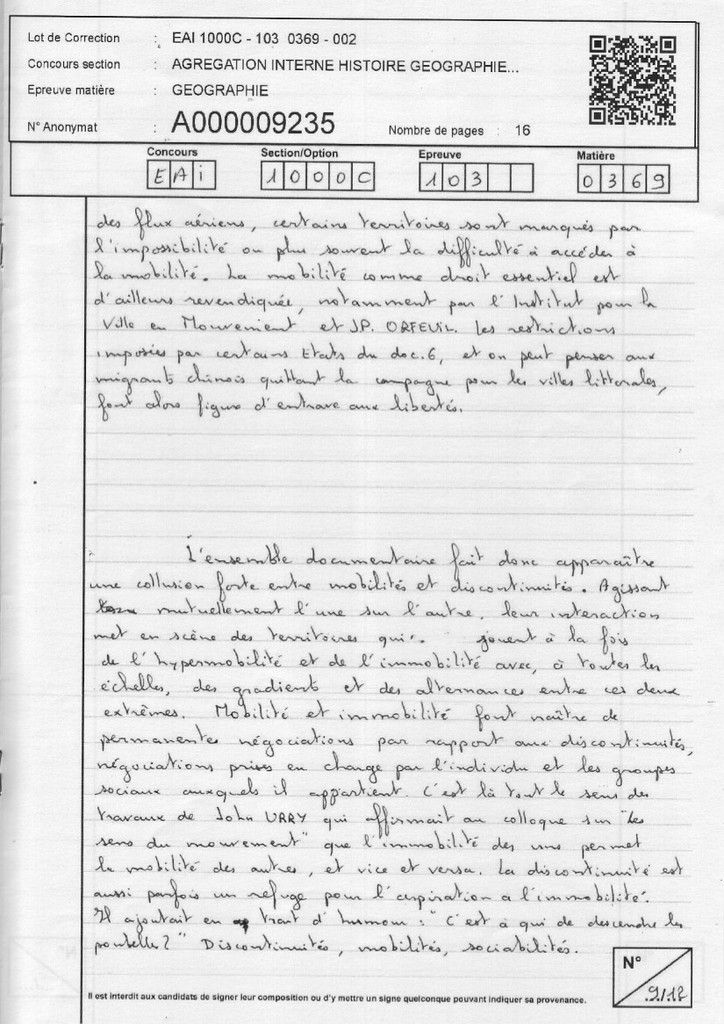 Lot de Correction : EAI 1000C - 103 0369 - 002
Concours section : AGREGATION INTERNE HISTOIRE GEOGRAPHIE...
Epreuve matière : GEOGRAPHIE
N° Anonymat : A000009235 Nombre de pages : 16
Concours Section/Option Epreuve Matière
EAI 1000C 103 0369
des flux aériens, certains territoires sont marqués par
l'impossibilité ou plus souvent la difficulté à accéder à
la mobilité. La mobilité comme droit essentiel est
d'ailleurs revendiquée, notamment par l'Institut pour la
Ville en Mouvement et JP. ORFEUIL. Les restrictions
imposées par certains Etats du doc.6, et on peut penser aux
migrants chinois quittant la campagne pour les villes littorales,
font alors figure d'entrave aux libertés.
L'ensemble documentaire fait donc apparaître
une collusion forte entre mobilités et discontinuités. Agissant
mutuellement l'une sur l'autre, leur interaction
met en scène des territoires qui jouent à la fois
de l'hypermobilité et de l'immobilité avec, à toutes les
échelles, des gradients et des alternances entre ces deux
extrêmes. Mobilité et immobilité font naître de
permanentes négociations par rapport aux discontinuités,
négociations prises en charge par l'individu et les groupes
sociaux auxquels il appartient. C'est là tout le sens des
travaux de John URRY qui affirmait au colloque sur "les
sens du mouvement" que l'immobilité des uns permet
la mobilité des autres, et vice et versa. La discontinuité est
aussi parfois un refuge pour l'aspiration a l'immobilité.
Il ajoutait en trait d'humour : "C'est à qui de descendre les
poubelles ?" Discontinuités, mobilités, sociabilités.
N° 9/12
Il est interdit aux candidats de signer leur composition ou d'y mettre un signe quelconque pouvant indiquer sa provenance.